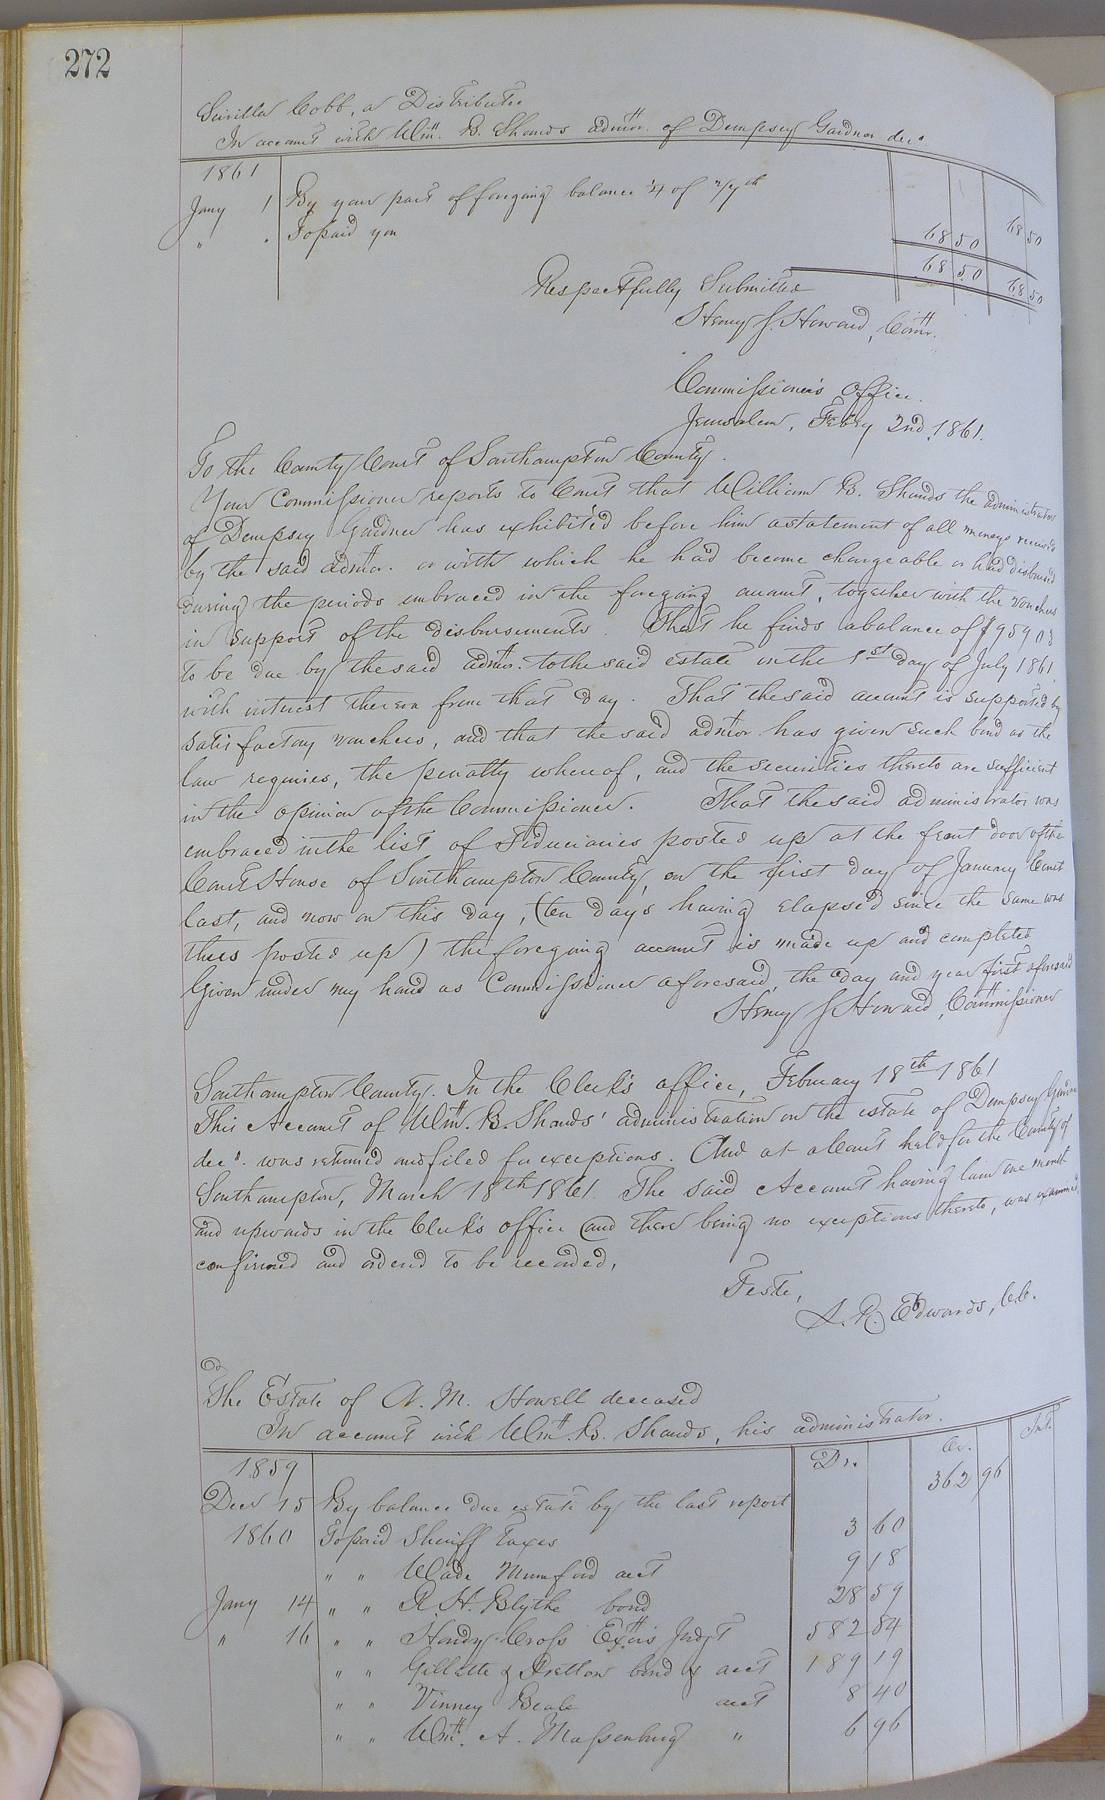 272
Sevilla Cobb, a Distributee
In account with Wm. B. Shands admor. of Dempsey Gardner decd.
1861
Jany 1 By your part of foregoing balance ¼ of
" " To paid you 68 50 68 50
68 50 68 50
Respectfully Submitted
Henry J. Howard, Comr.
Commissioner's Office.
Jerusalem, Feby 2nd, 1861.
To the County Court of Southampton County.
Your Commissioner reports to Court that William B. Shands the administrator
of Dempsey Gardner has exhibited before him a statement of all moneys received
by the said admor. or with which he had become chargeable or had disbursed
during the periods embraced in the foregoing account, together with the vouchers
in support of the disbursements. That he finds a balance of $959 03
to be due by the said admor. to the said estate on the 1st day of July 1861
with interest thereon from that day. That the said account is supported by
satisfactory vouchers, and that the said admor has given such bond as the
law requires, the penalty whereof, and the securities thereto are sufficient
in the opinion of the Commissioner. That the said administrator was
embraced in the list of Fiduciaries posted up at the front door of the
Court House of Southampton County, on the first day of January Court
last, and now on this day, (ten days having elapsed since the same was
thus posted up) the foregoing account is made up and completed
Given under my hand as Commissioner aforesaid, the day and year first aforesaid
Henry J Howard, Commissioner
Southampton County. In the Clerk's office, February 18th 1861
This Account of Wm. B. Shands' administration on the estate of Dempsey Gardner
decd. was returned and filed for exceptions. And at a Court held for the County of
Southampton, March 18th 1861 The said Account having lain one month
and upwards in the Clerk's office and there being no exceptions thereto, was examined,
confirmed and ordered to be recorded,
Teste,
L. R. Edwards, C.C.
The Estate of A. M. Howell deceased
In account with Wm. B. Shands, his administrator.
1859 Dr. Cr. Int.
Decr 15 By balance due estate by the last report 362 96
1860 To paid Sheriff Taxes 3 60
" " Wade Mumford acct 9 18
Jany 14 " " R. H. Blythe bond 28 59
" 16 " " Hardy Cross Exor's Judgt 582 84
" " Gillette & Pretlow bond & acct 189 19
" " Vinney Beale acct 8 40
" " Wm. A. Massenburg " 6 96